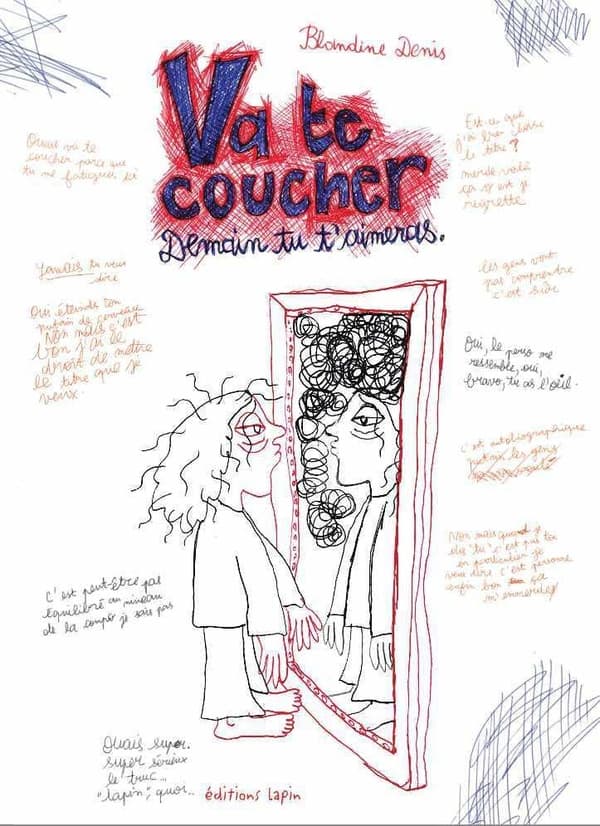 Blandine Denis
Va te
coucher
Demain tu t'aimeras.
Ouais va te
coucher parce que
tu me fatigues
Est-ce que
j'ai bien choisi
le titre ?
merde voilà
ça y est je
regrette
Jamais tu veux
dire
Oui éteinds ton
putain de cerveau
Non mais c'est
bon j'ai le
droit de mettre
le titre que je
veux.
les gens vont
pas comprendre
c'est sûr
Oui, le perso me
ressemble, oui,
bravo, tu as l'oeil.
c'est autobiographique
putain les gens
Non mais quand je
dis "tu" c'est pas toi
en particulier je
veux dire c'est personne
enfin bon ça
m'emmerde
C'est peut-être pas
équilibré au niveau
de la compo je sais pas
Ouais super.
super sérieux
le truc...
"lapin", quoi..
éditions lapin